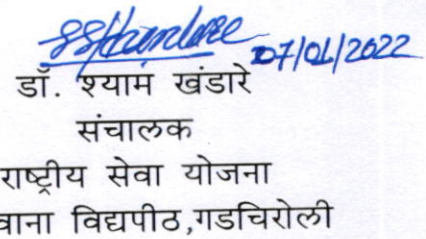 07/01/2022
डॉ. श्याम खंडारे
संचालक
राष्ट्रीय सेवा योजना
वाना विद्यपीठ,गडचिरोली